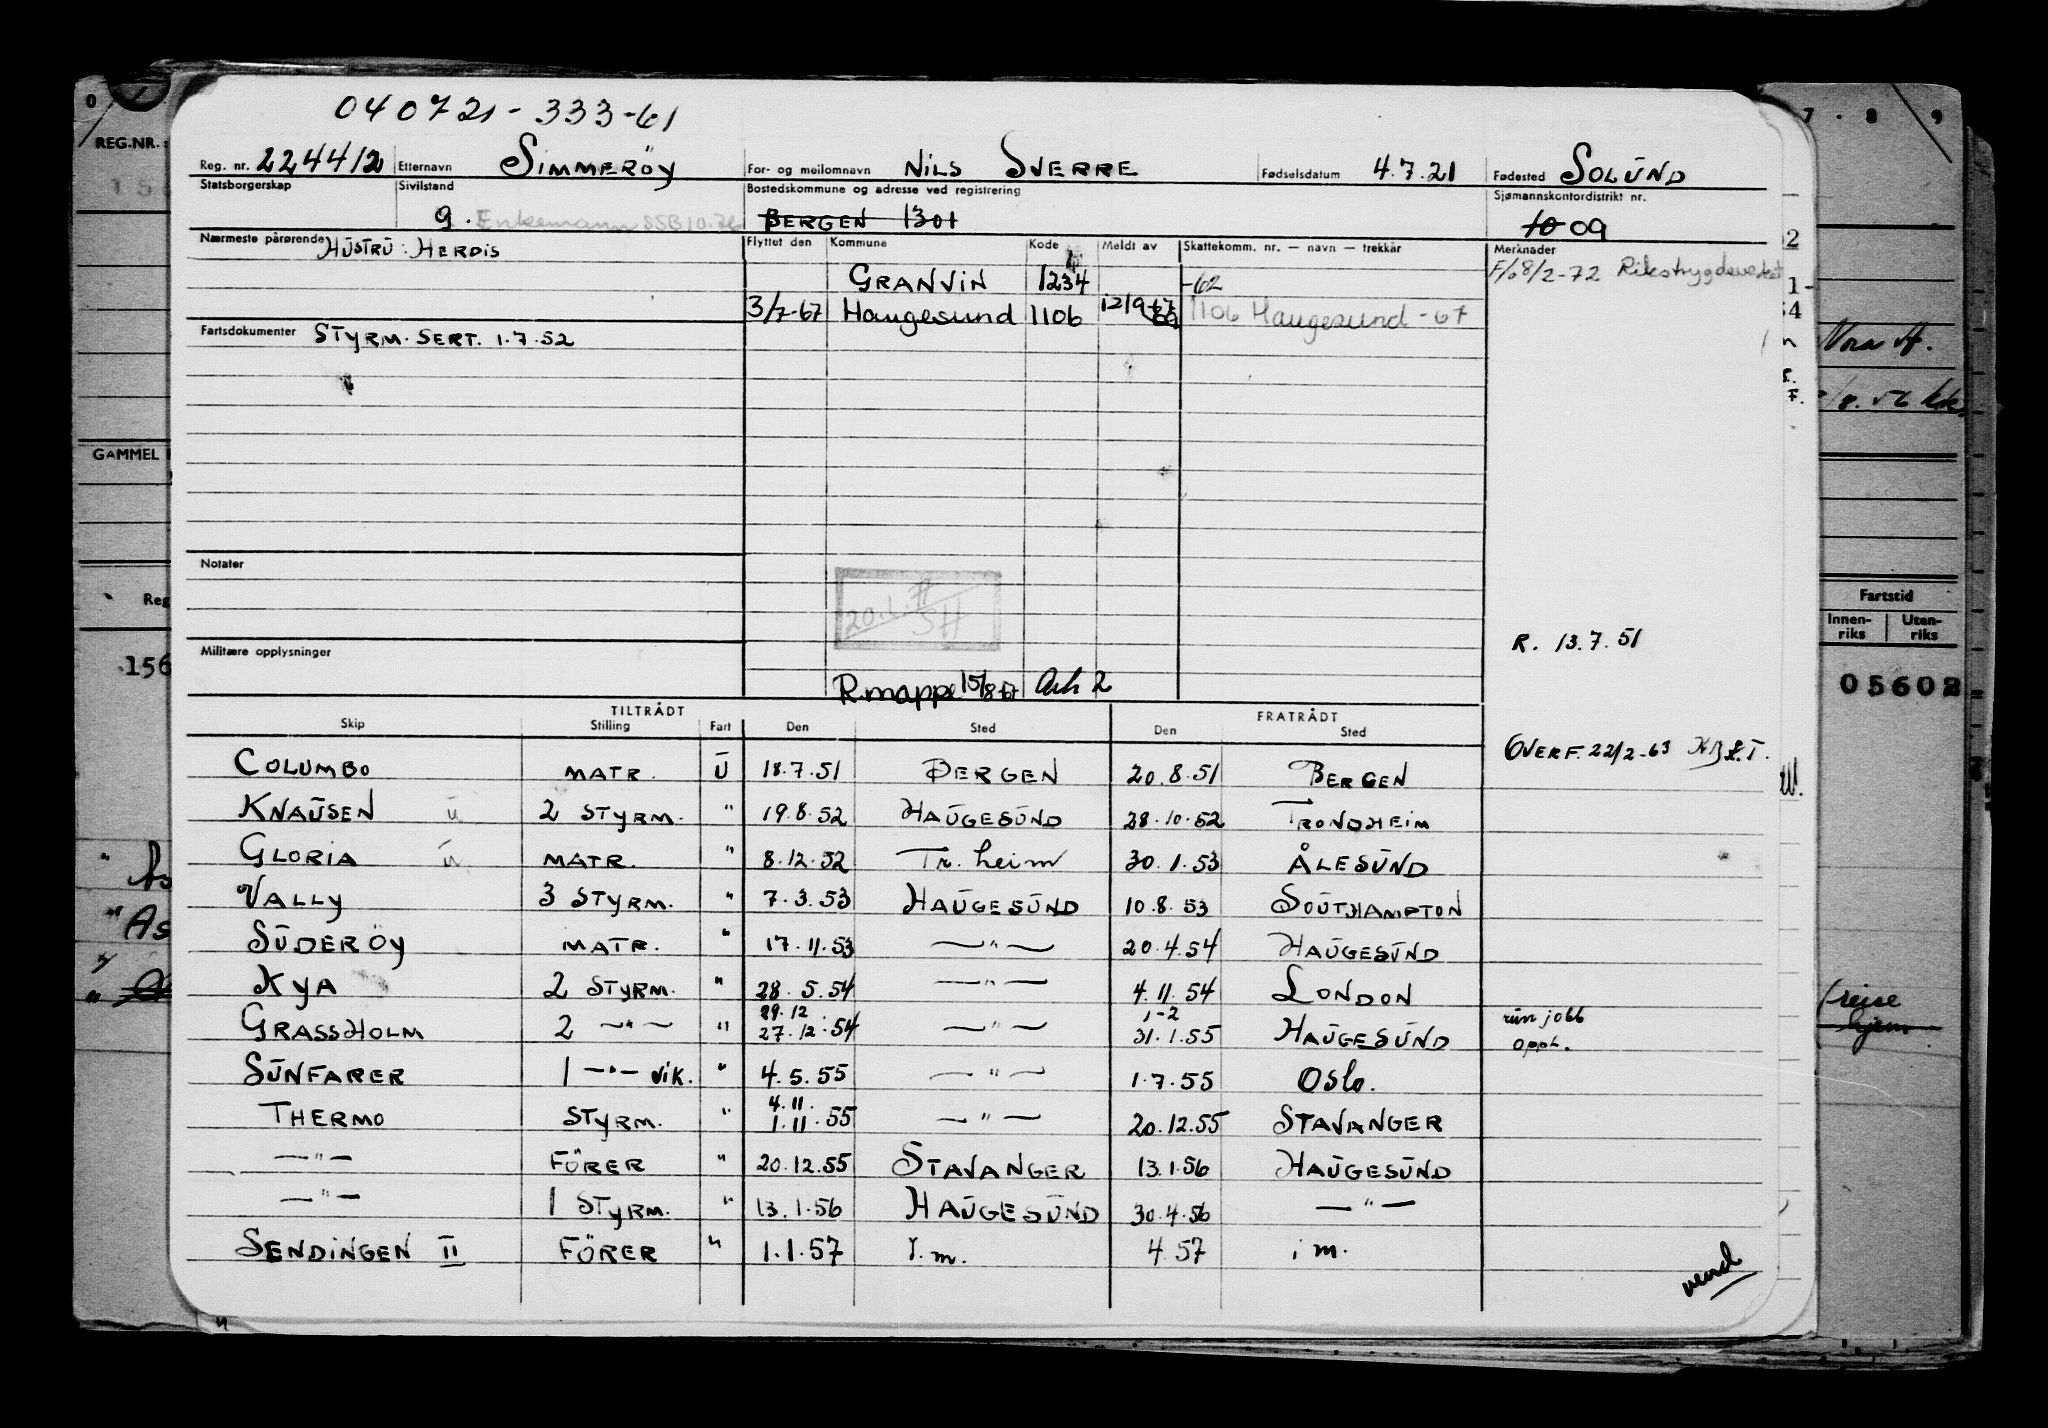 040721-333-61
Reg. nr. 22441/2 Etternavn SIMMERÖY For- og mellomnavn NILS SVERRE Fødselsdatum 4.7.21 Fødested SOLUND
Statsborgerskap Sivilstand g. Enkemann SSB 10.76 Bostedskommune og adresse ved registrering BERGEN 1301 Sjømannskontordistrikt nr. 10 09
Nærmeste pårørende HUSTRU: HERDIS Flyttet den Kommune Kode Meldt av Skattekomm. nr. — navn — trekkår Merknader
GRANVIN 1234 -62 F/o 8/2-72 Rikstrygdeverket
3/7-67 Haugesund 1106 12/9-67 1106 Haugesund -67
Fartsdokumenter STYRM. SERT. 1.7.52
Notater
20.1. SH
R. 13.7.51
Militære opplysninger
R.mappe 15/8-67 Ark 2
TILTRÅDT FRATRÅDT
Skip Stilling Fart Den Sted Den Sted
OVERF. 22/2-63
COLUMBO MATR. U 18.7.51 BERGEN 20.8.51 BERGEN
KNAUSEN u 2 STYRM. " 19.8.52 HAUGESUND 28.10.52 TRONDHEIM
GLORIA u MATR. " 8.12.52 Tr.heim 30.1.53 ÅLESUND
VALLY 3 STYRM. " 7.3.53 HAUGESUND 10.8.53 SOUTHAMPTON
SUDERÖY MATR. " 17.11.53 —"— 20.4.54 HAUGESUND
KYA 2 STYRM. " 28.5.54 —"— 4.11.54 LONDON
29.12 1-2 run jobb
GRASSHOLM 2 —"— " 27.12.54 —"— 31.1.55 HAUGESUND opph.
SUNFARER 1 —"— VIK. " 4.5.55 —"— 1.7.55 Oslo.
4.11.
THERMO STYRM. " 1.11.55 —"— 20.12.55 STAVANGER
—"— FÖRER " 20.12.55 STAVANGER 13.1.56 HAUGESUND
—"— 1 STYRM. " 13.1.56 HAUGESUND 30.4.56 —"—
SENDINGEN II FÖRER " 1.1.57 I.m. 4.57 i m.
vend
REG.NR.:
GAMMEL
Reg
156
7 . 8 9
Nora
Fartstid
Innen-riks Uten-riks
05602
reise
hjem